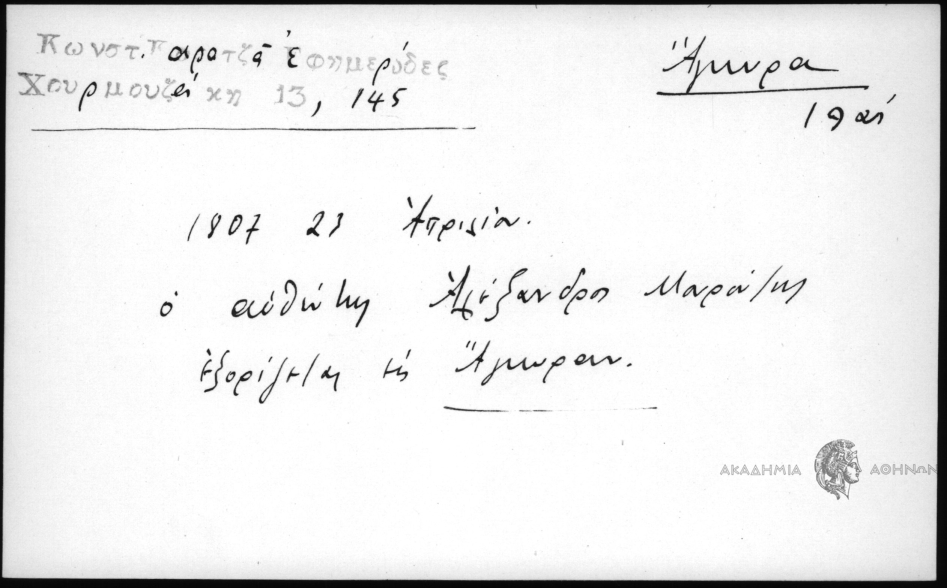 Κωνστ. Καρατζᾶ Ἐφημερίδες
Χουρμουζάκη 13, 145
Ἄγκυρα
19 αἰ
1807 23 Ἀπριλίου.
ὁ αὐθέντης Ἀλέξανδρος
ἐξορίζεται εἰς Ἄγκυραν.
ΑΚΑΔΗΜΙΑ ΑΘΗΝΩΝ